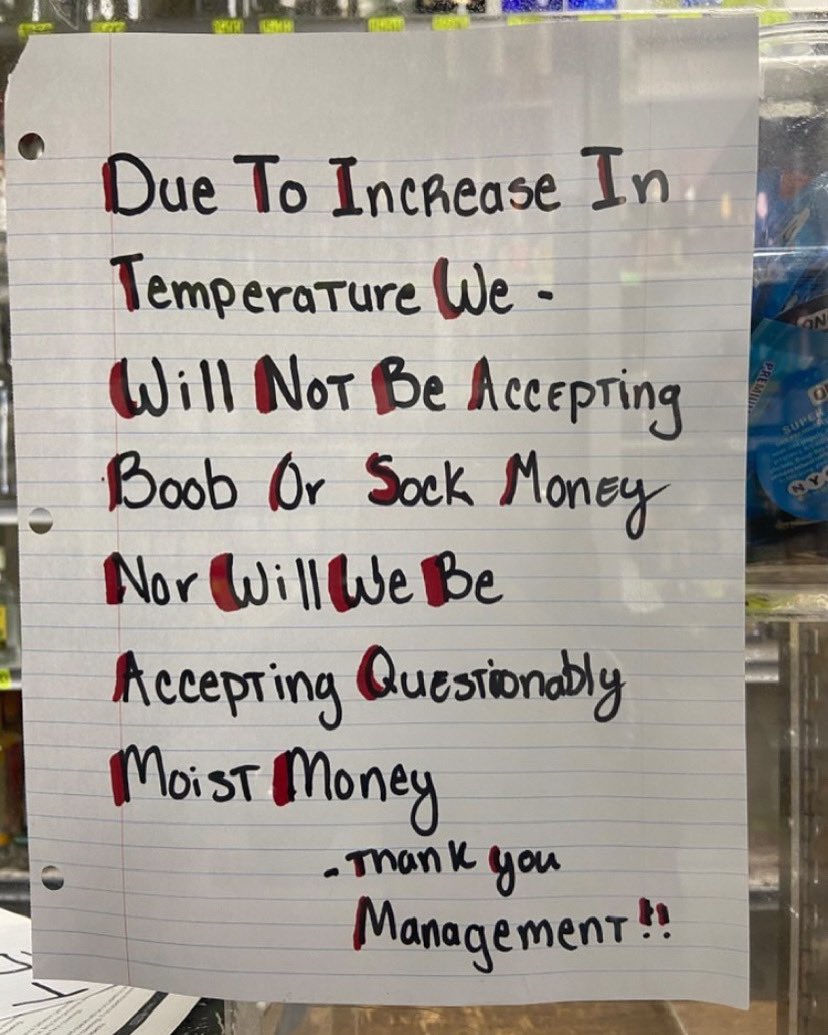 Due To Increase In
Temperature We -
Will Not Be Accepting
Boob Or Sock Money
Nor Will We Be
Accepting Questionably
Moist Money
- Thank you
Management!!
PREMIUM
SUPER